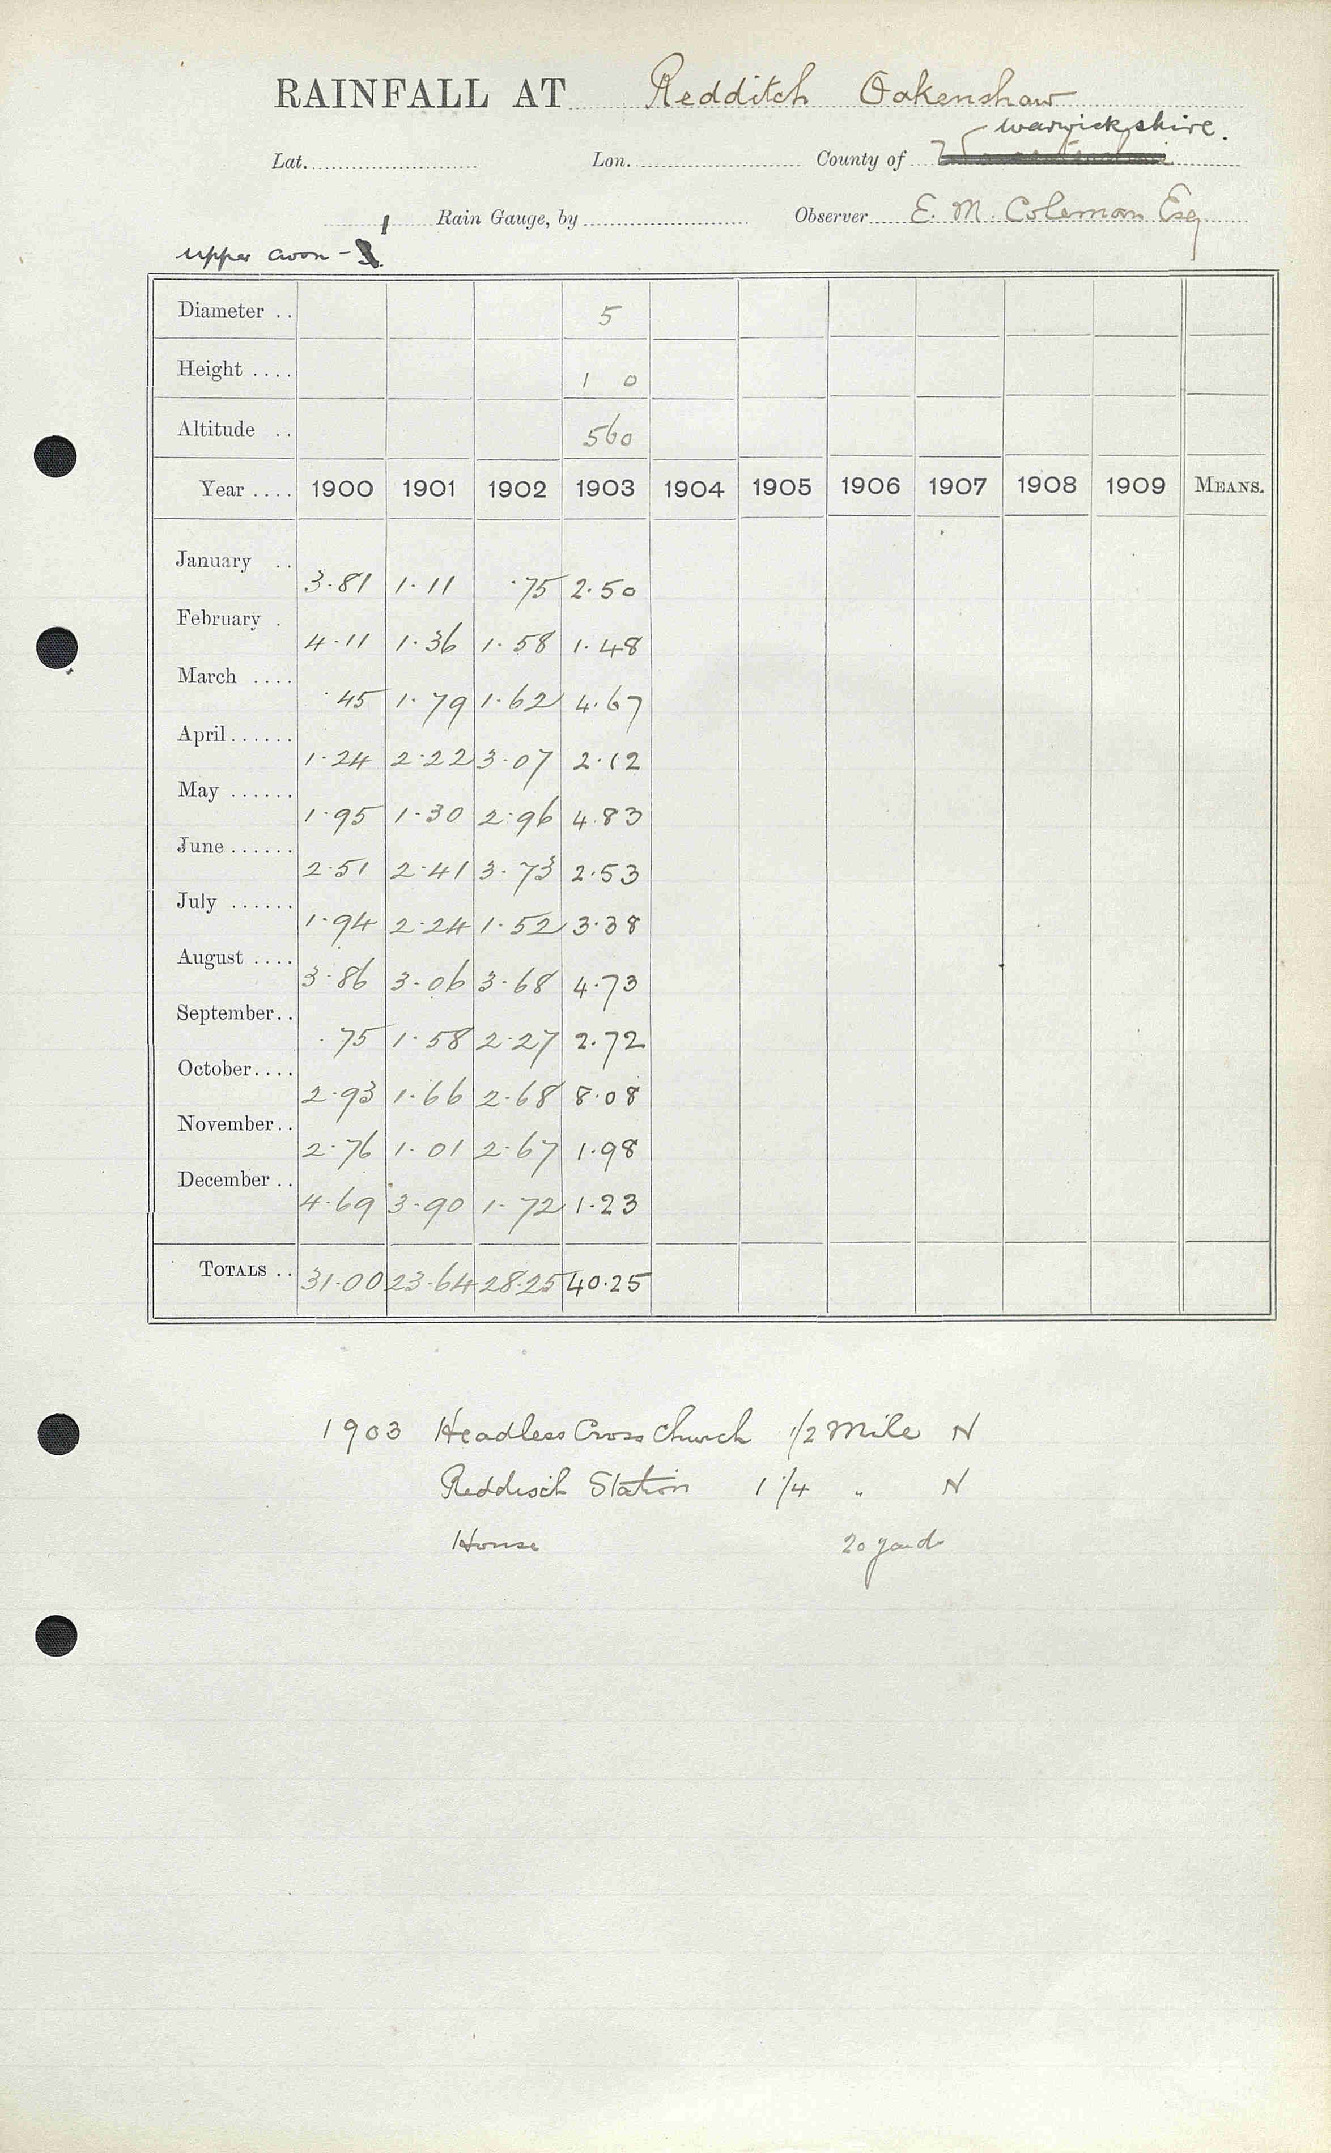 RAINFALL AT Redditch Oakenshaw
Warwickshire.
Lat. Lon. County of
1 Rain Gauge, by Observer E. M. Coleman Esq
Upper Avon -
Diameter .. 5
Height .... 1 0
Altitude .. 560
Year .... 1900 1901 1902 1903 1904 1905 1906 1907 1908 1909 MEANS.
January .. 3.81 1.11 .75 2.50
February . 4.11 1.36 1.58 1.48
March .... .45 1.79 1.62 4.67
April...... 1.24 2.22 3.07 2.12
May ...... 1.95 1.30 2.96 4.83
June ...... 2.51 2.41 3.73 2.53
July ...... 1.94 2.24 1.52 3.38
August .... 3.86 3.06 3.68 4.73
September.. .75 1.58 2.27 2.72
October.... 2.93 1.66 2.68 8.08
November.. 2.76 1.01 2.67 1.98
December .. 4.69 3.90 1.72 1.23
TOTALS .. 31.00 23.64 28.25 40.25
1903 Headless Cross Church 1/2 Mile N
Redditch Station 1 1/4 " N
House 20 yards